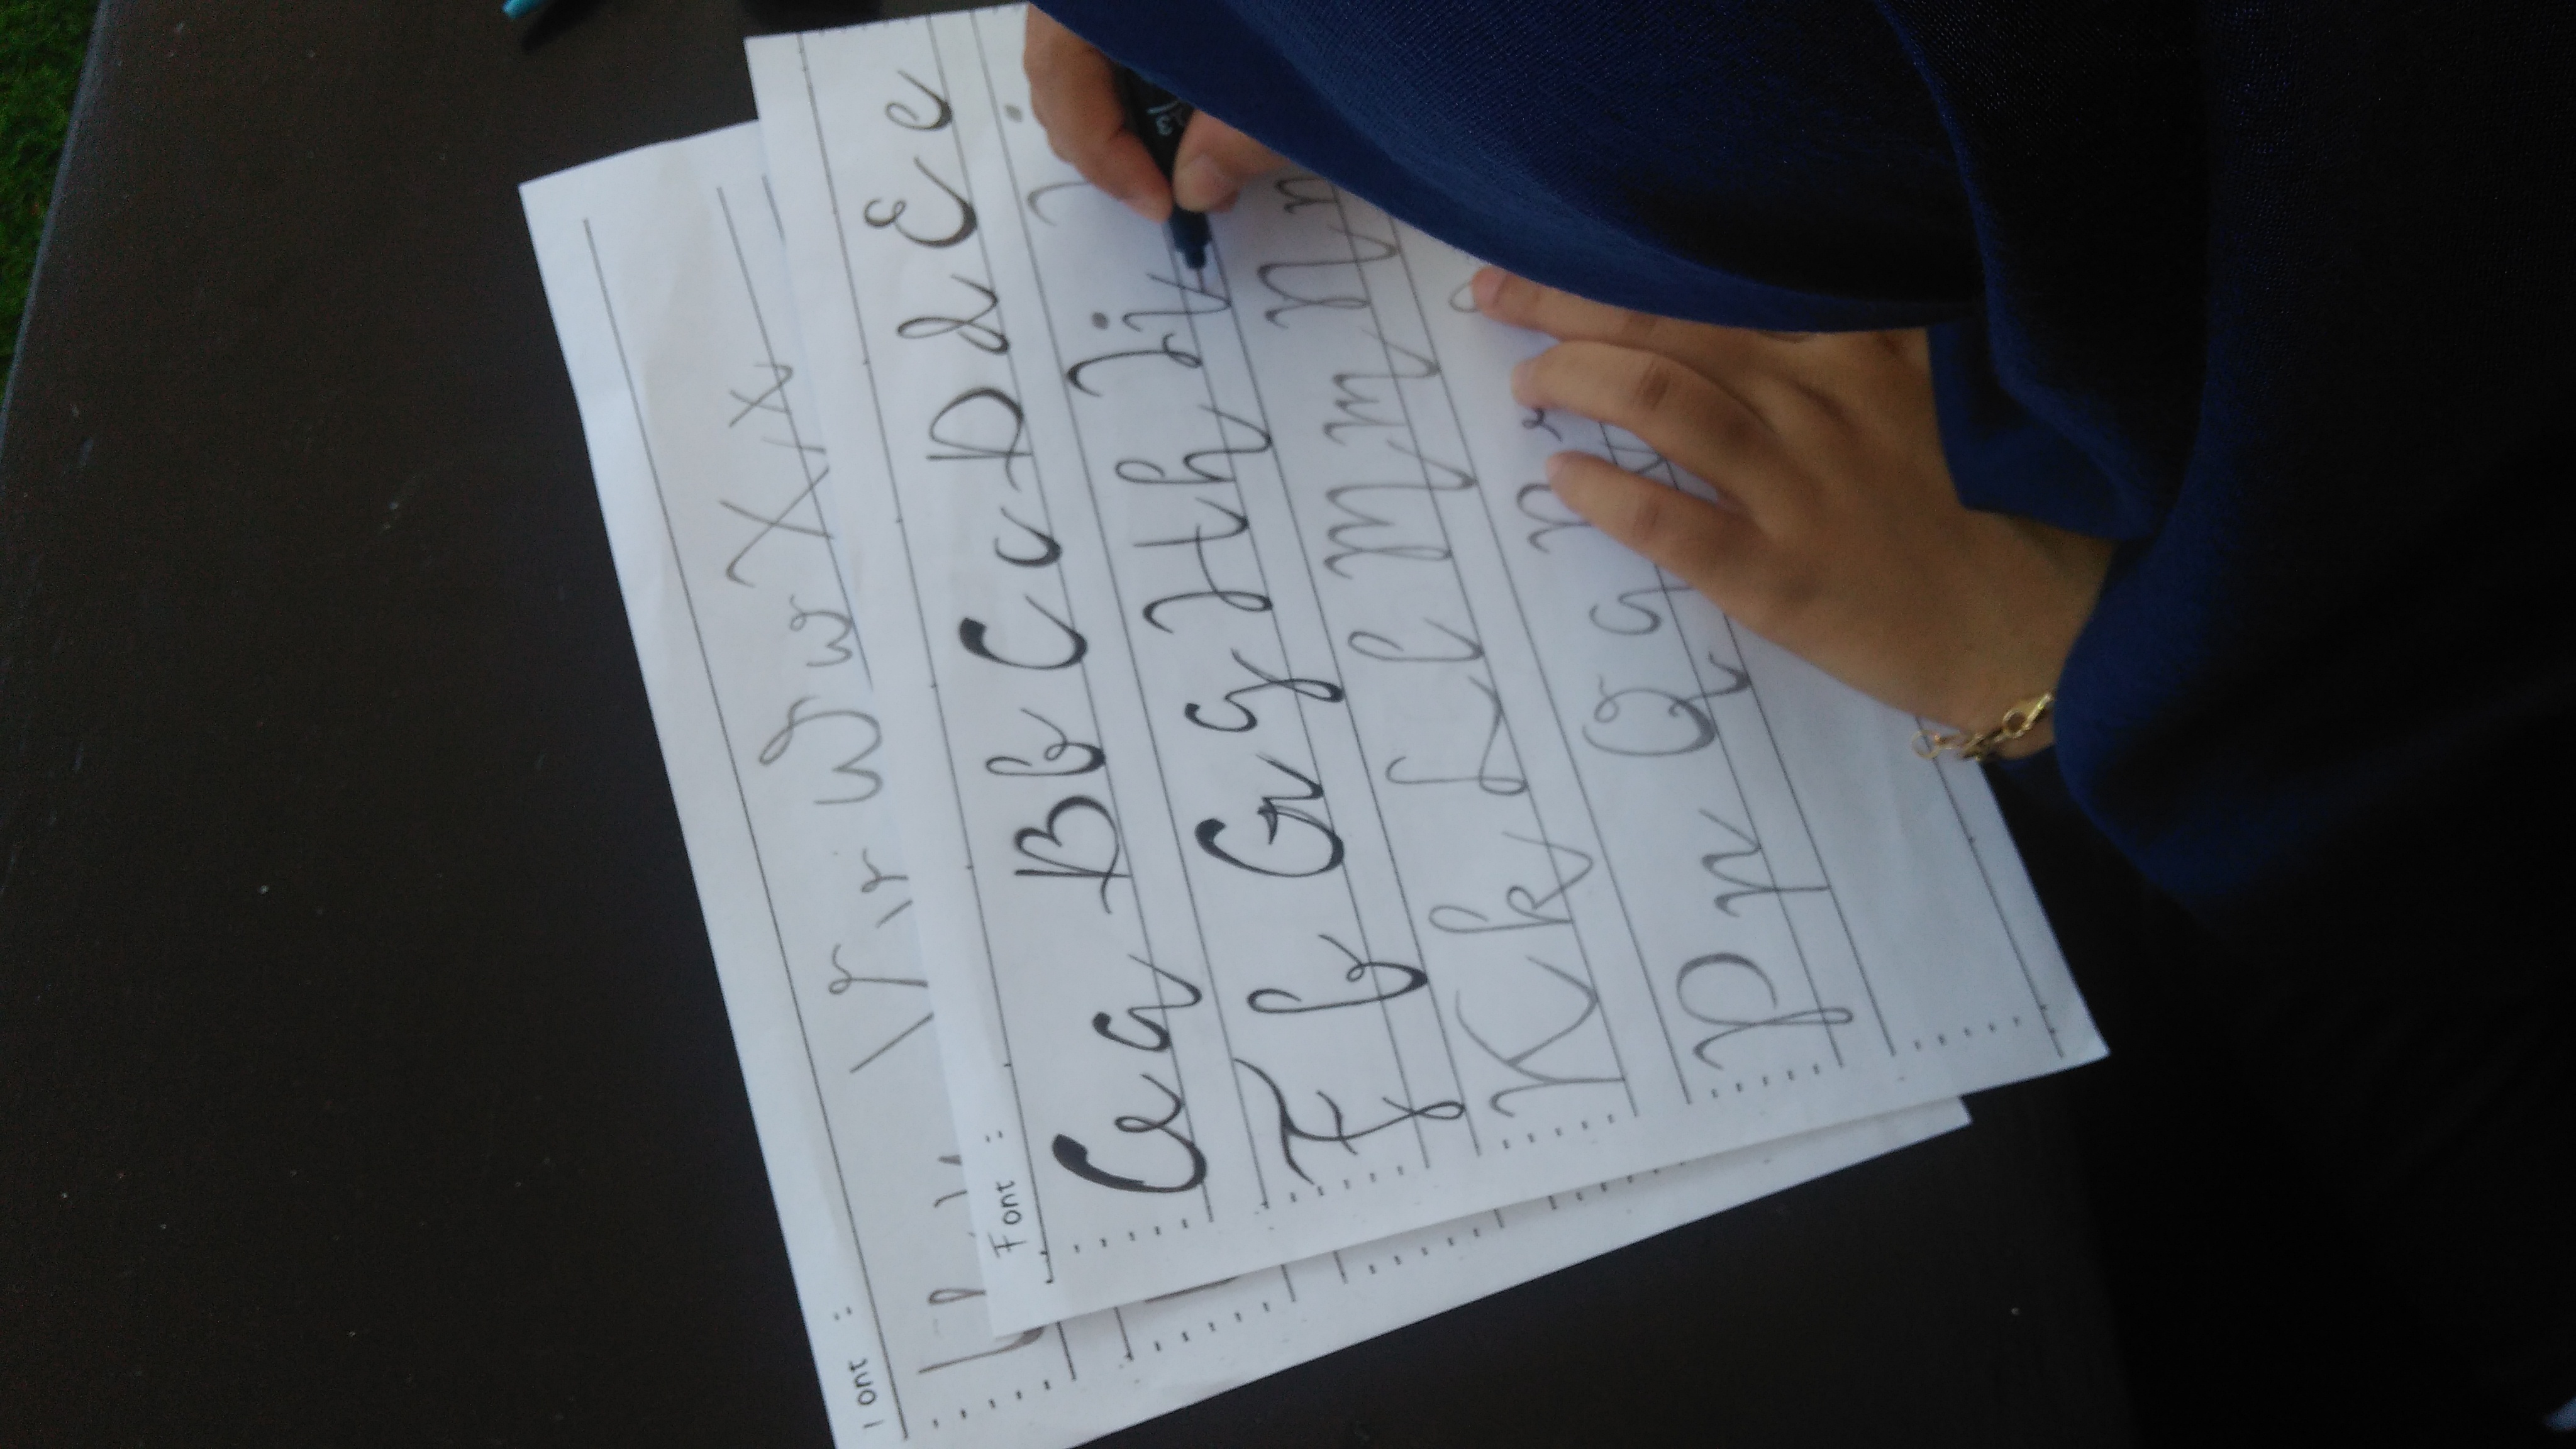 Font :
Aa Bb Cc Dd Ee
Ff Gg Hh Ii
Kk Ll Mm Nn
Pp Qq
Font :
Vv Ww Xx